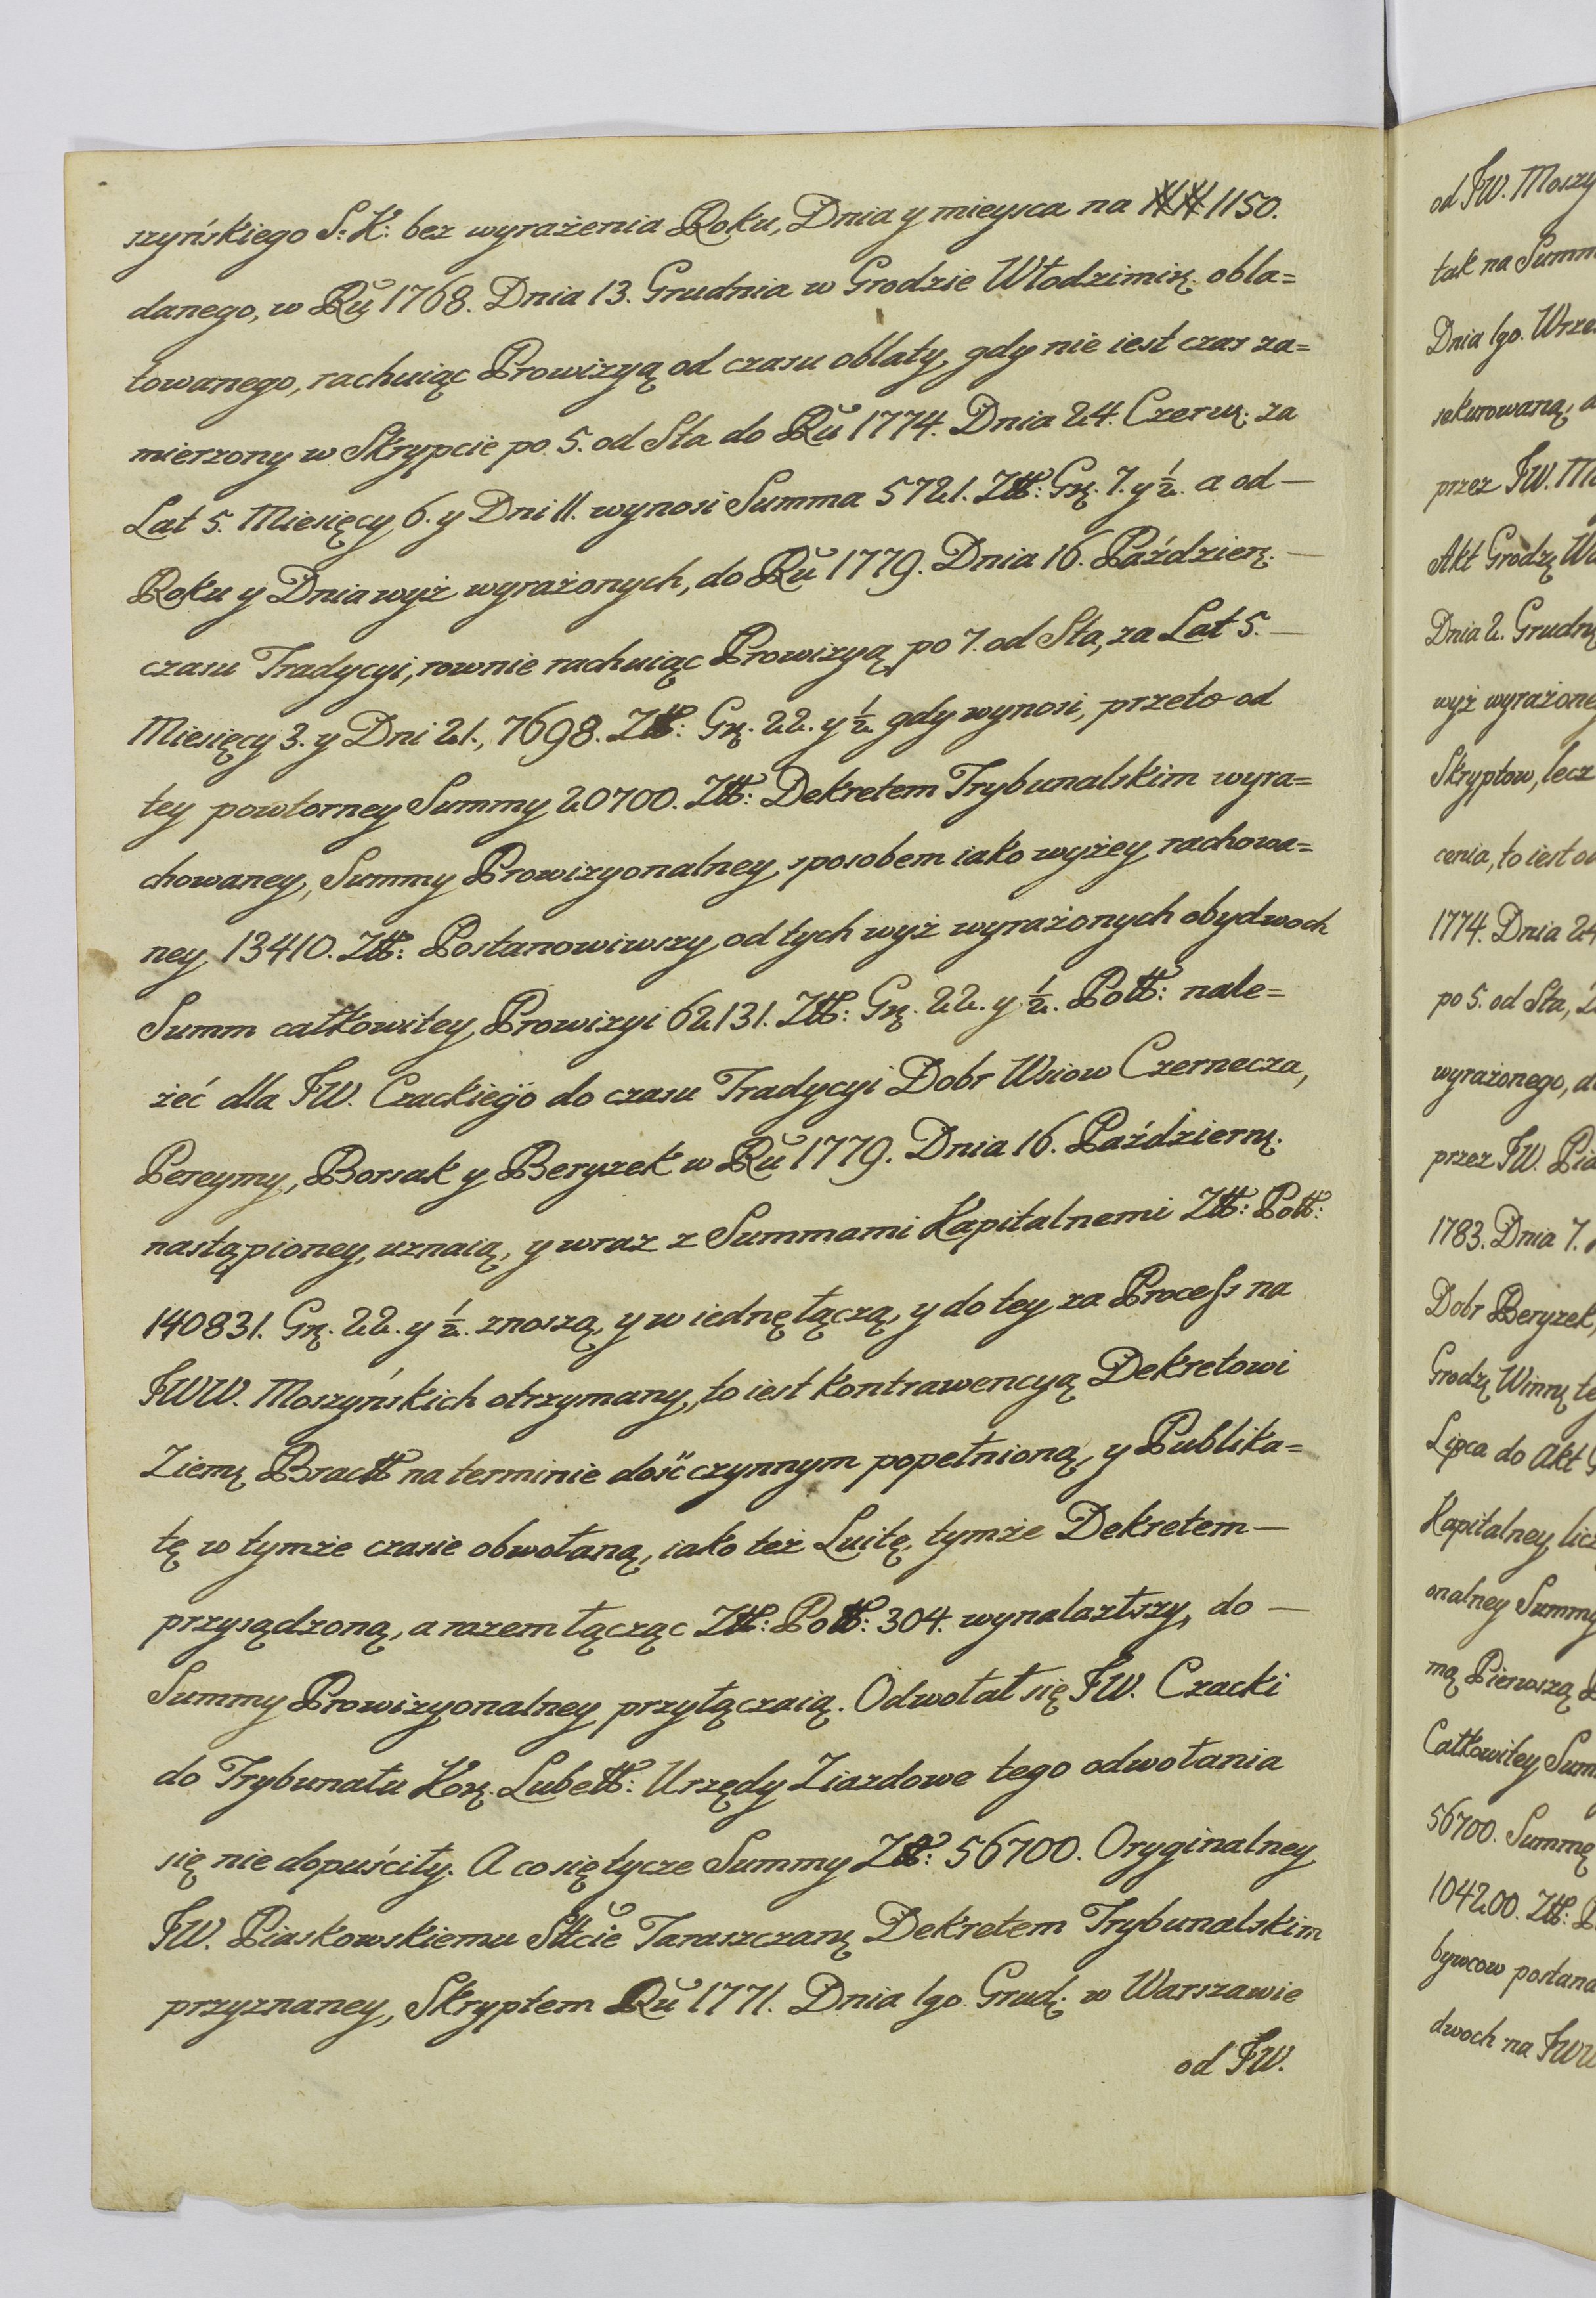 szyńskiego S: K: bez wyrażenia Roku, Dnia y mieysca na ## 1150.
danego, w Ru 1768. Dnia 13. Grudnia w Grodzie Włodzimirs. obla=
towanego, rachuiąc Prowizyą od czasu oblaty, gdy nie iest czas za=
mierzony w Skrypcie po 5. od Sta do Ru 1774. Dnia 24. Czerw. za
Lat 5. Miesięcy 6. y Dni 11. wynosi Summa 5721. Złł: Gr. 7. y ½. a od —
Roku y Dnia wyż wyrażonych, do Ru 1779. Dnia 16. Paździer. —
czasu Tradycyi, rownie rachuiąc Prowizyą po 7. od Sta, za Lat 5. —
Miesięcy 3. y Dni 21., 7698. Złł: Gr. 22. y ½ gdy wynosi, przeto od
tey powtorney Summy 20700. Złł: Dekretem Trybunalskim wyra=
chowaney, Summy Prowizyonalney, sposobem iako wyżey rachowa=
ney 13410. Złł: Postanowiwszy, od tych wyż wyrażonych obydwoch
Summ całkowitey Prowizyi 62131. Złł: Gr. 22. y ½. Połł: nale=
żeć dla JW. Czackiego do czasu Tradycyi Dobr Wsiow Czernecza,
Pereymy, Borsak y Beryzek w Ru 1779. Dnia 16. Październ.
nastąpioney, uznaią, y wraz z Summami Kapitalnemi Złł: Połł:
140831. Gr. 22. y ½. znoszą, y w iednę łączą, y do tey za Process na
JWW. Moszyńskich otrzymany, to iest kontrawencyą Dekretowi
Ziem. Bracłł na terminie dość czynnym popełnioną, y Publika=
tę w tymże czasie obwołaną, iako też Luitę, tymże Dekretem —
przysądzoną, a razem łącząc Złł: Połł: 304. wynalazłszy, do —
Summy Prowizyonalney przyłączaią. Odwołał się JW. Czacki
do Trybunału Kor. Lubełł: Urzędy Ziazdowe tego odwołania
się nie dopuściły. A co się tycze Summy Złł: 56700. Oryginalney
JW. Piaskowskiemu Stłcie Taraszczań. Dekretem Trybunalskim
przyznaney, Skryptem Ru 1771. Dnia 1go. Grud. w Warszawie
od JW.
od JW. Moszy
tak na Summ
Dnia 1go. Wrze
sekurowaną,
przez JW. M
Akt Grodz.
Dnia 2. Grudn
wyż wyrażone
Skryptow, lecz
cenia, to iest o
1774. Dnia 24
po 5. od Sta,
wyrażonego, d
przez JW. Pia
1783. Dnia 7.
Dobr Beryzek,
Grodz. Winn. te
Lipca do Akt G
Kapitalney, licz
onalney Summy
mą Pierwszą
Całkowitey Sum
56700. Summę
104200. Złł: P
bywcow postana
dwoch na JWW